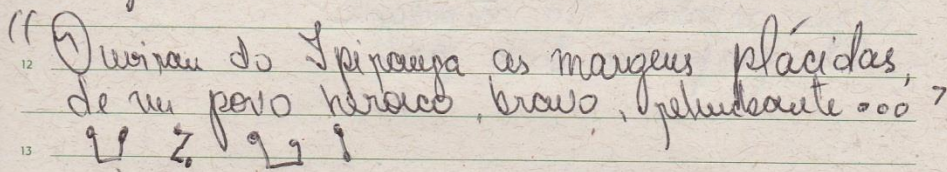 "Ouviram do Ipiranga as margens plácidas,
12
de um povo heroico, bravo, retumbante..."
13